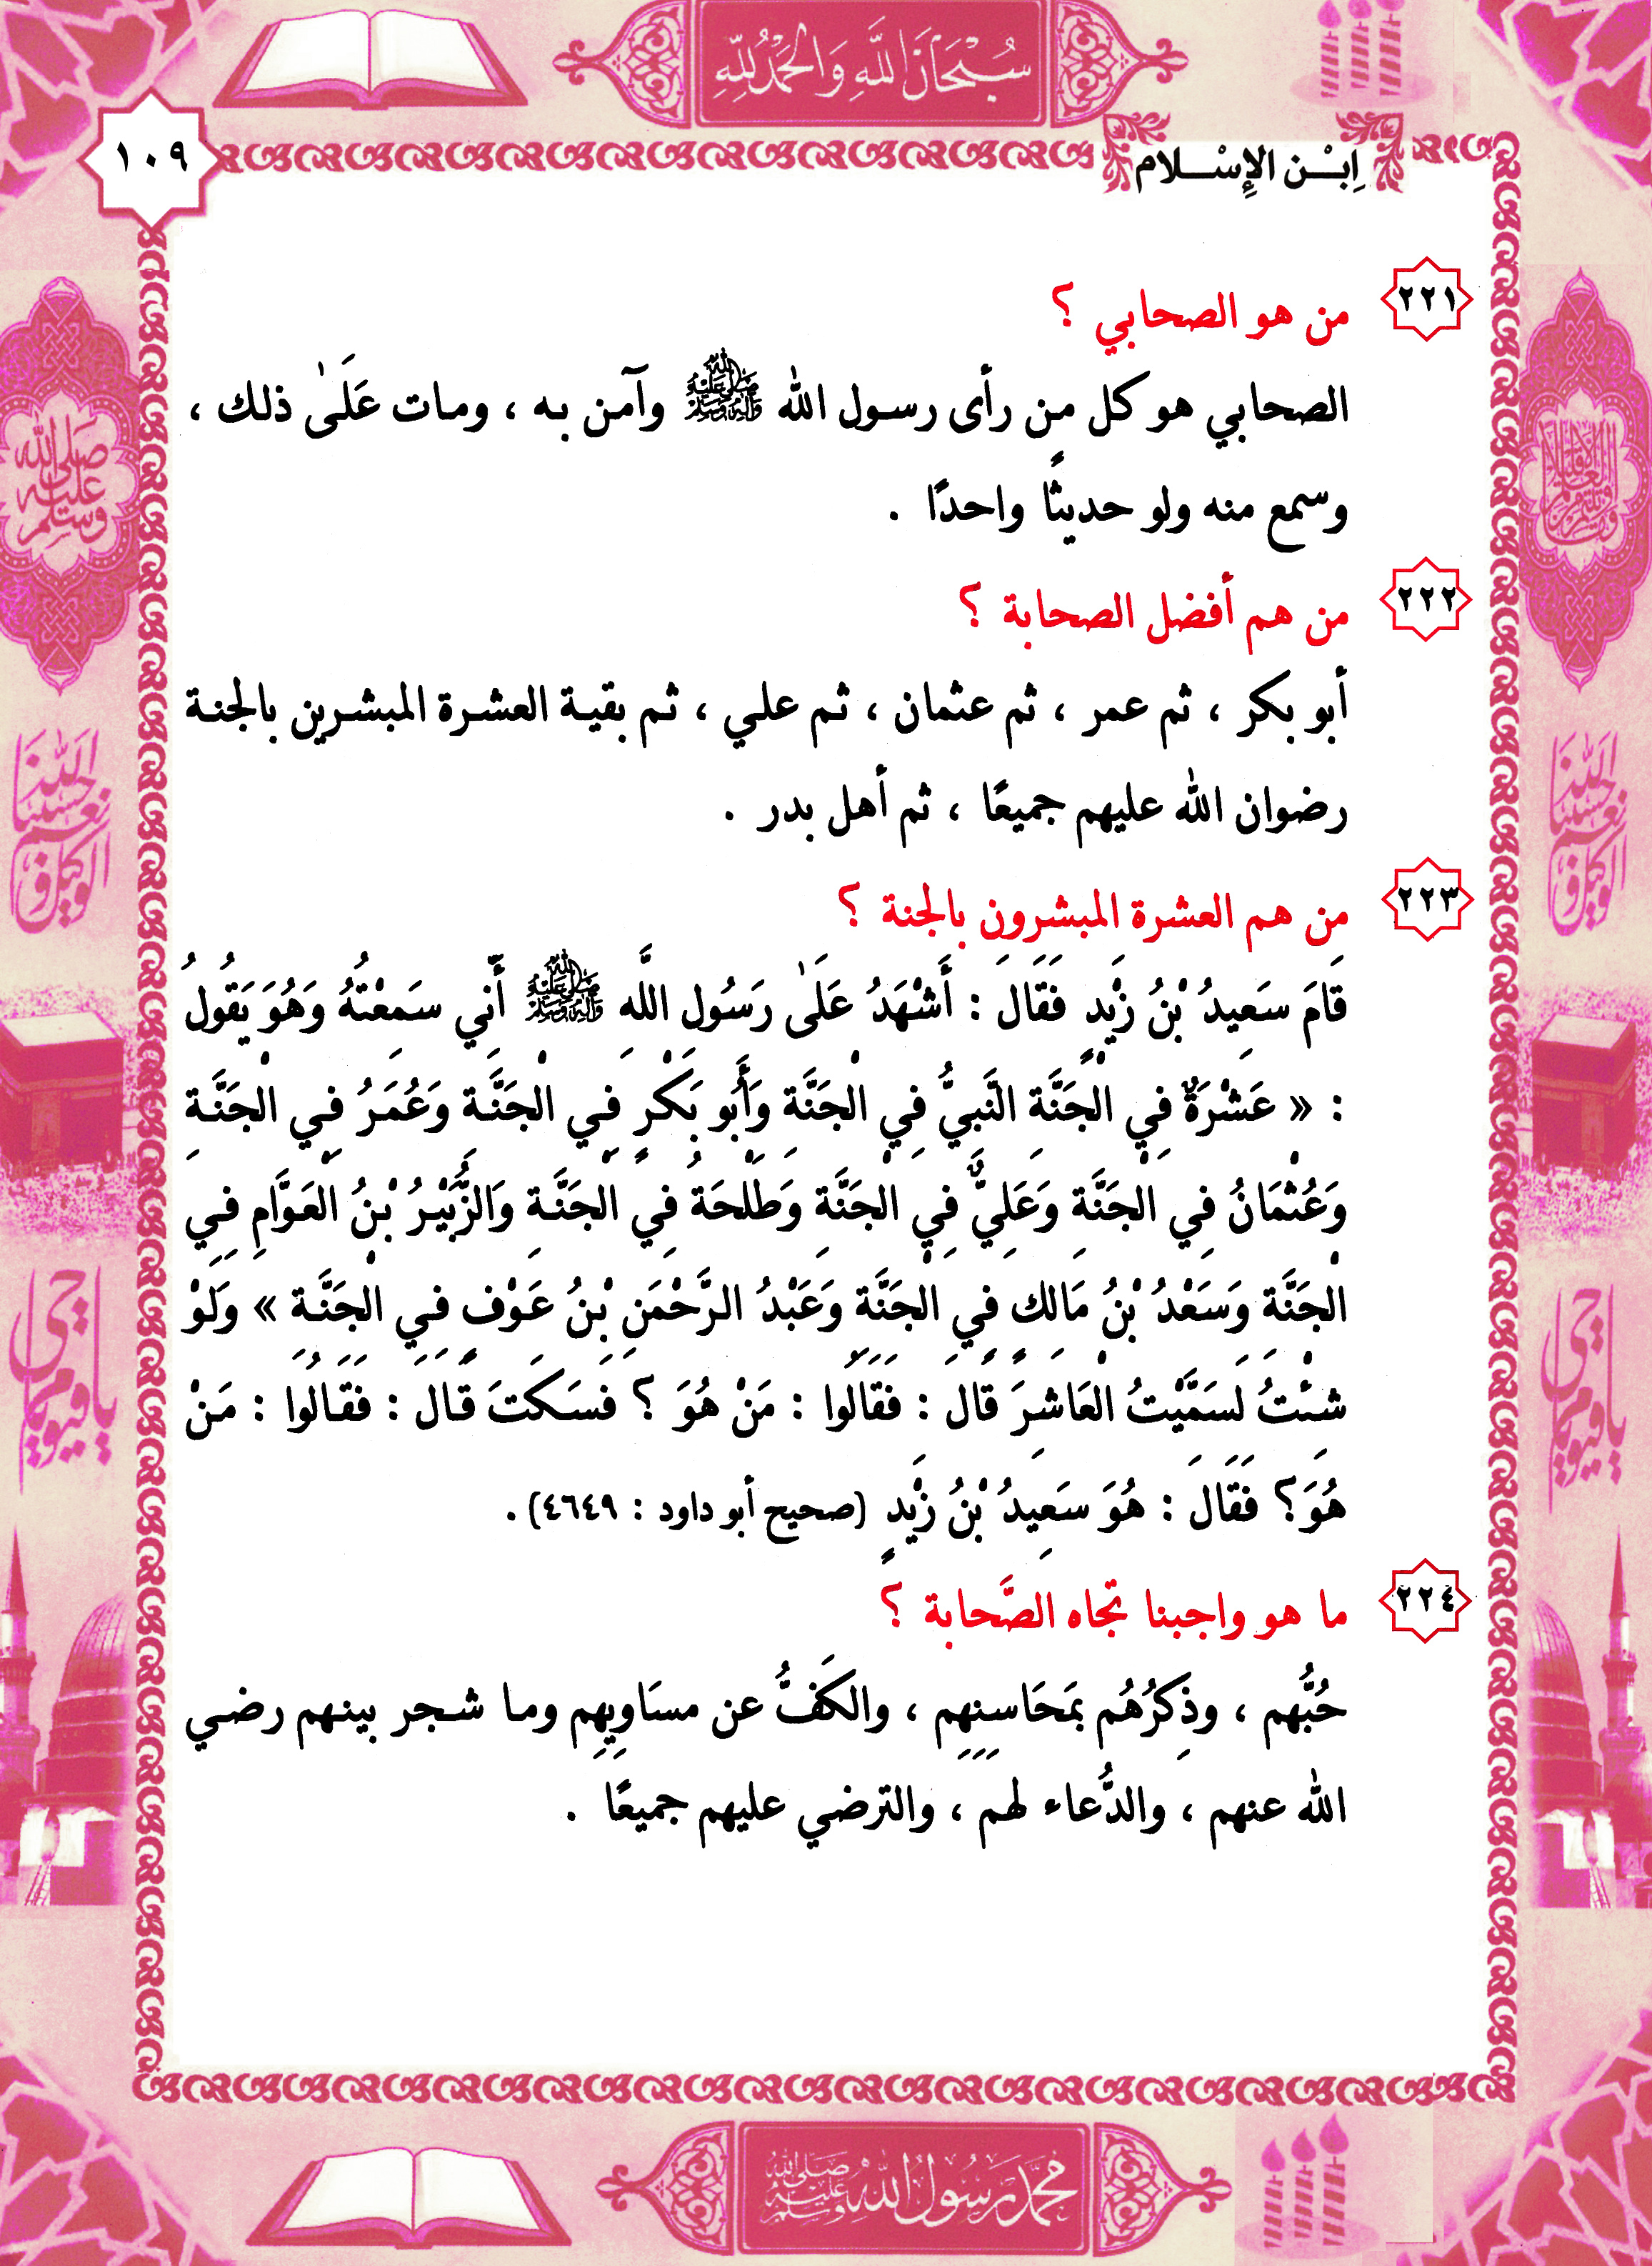 سُبْحَانَ اللَّهِ وَالْحَمْدُ لِلَّهِ
١٠٩
اِبْن الإِسْلام
٢٢١
من هو الصحابي ؟
الصحابي هو كل من رأى رسول الله ﷺ وآمن به ، ومات عَلَىٰ ذلك ،
وسمع منه ولو حديثًا واحدًا .
٢٢٢
من هم أفضل الصحابة ؟
أبو بكر ، ثم عمر ، ثم عثمان ، ثم علي ، ثم بقية العشرة المبشرين بالجنة
رضوان الله عليهم جميعًا ، ثم أهل بدر .
٢٢٣
من هم العشرة المبشرون بالجنة ؟
قَامَ سَعِيدُ بْنُ زَيْدٍ فَقَالَ : أَشْهَدُ عَلَىٰ رَسُولِ اللَّهِ ﷺ أَنِّي سَمِعْتُهُ وَهُوَ يَقُولُ
: « عَشْرَةٌ فِي الْجَنَّةِ النَّبِيُّ فِي الْجَنَّةِ وَأَبُو بَكْرٍ فِي الْجَنَّةِ وَعُمَرُ فِي الْجَنَّةِ
وَعُثْمَانُ فِي الْجَنَّةِ وَعَلِيٌّ فِي الْجَنَّةِ وَطَلْحَةُ فِي الْجَنَّةِ وَالزُّبَيْرُ بْنُ الْعَوَّامِ فِي
الْجَنَّةِ وَسَعْدُ بْنُ مَالِكٍ فِي الْجَنَّةِ وَعَبْدُ الرَّحْمَنِ بْنُ عَوْفٍ فِي الْجَنَّةِ » وَلَوْ
شِئْتُ لَسَمَّيْتُ الْعَاشِرَ قَالَ : فَقَالُوا : مَنْ هُوَ ؟ فَسَكَتَ قَالَ : فَقَالُوا : مَنْ
هُوَ ؟ فَقَالَ : هُوَ سَعِيدُ بْنُ زَيْدٍ (صحيح أبو داود : ٤٦٤٩) .
٢٢٤
ما هو واجبنا تجاه الصَّحابة ؟
حُبُّهم ، وذِكرُهُم بمَحَاسِنِهِم ، والكَفُّ عن مسَاوِيِهِم وما شجر بينهم رضي
الله عنهم ، والدُّعاء لهم ، والترضي عليهم جميعًا .
صلى الله عليه وسلم
حسبنا الله ونعم الوكيل
حسبنا الله ونعم الوكيل
يا حي يا قيوم
يا حي يا قيوم
محمد رسول الله صلى الله عليه وسلم